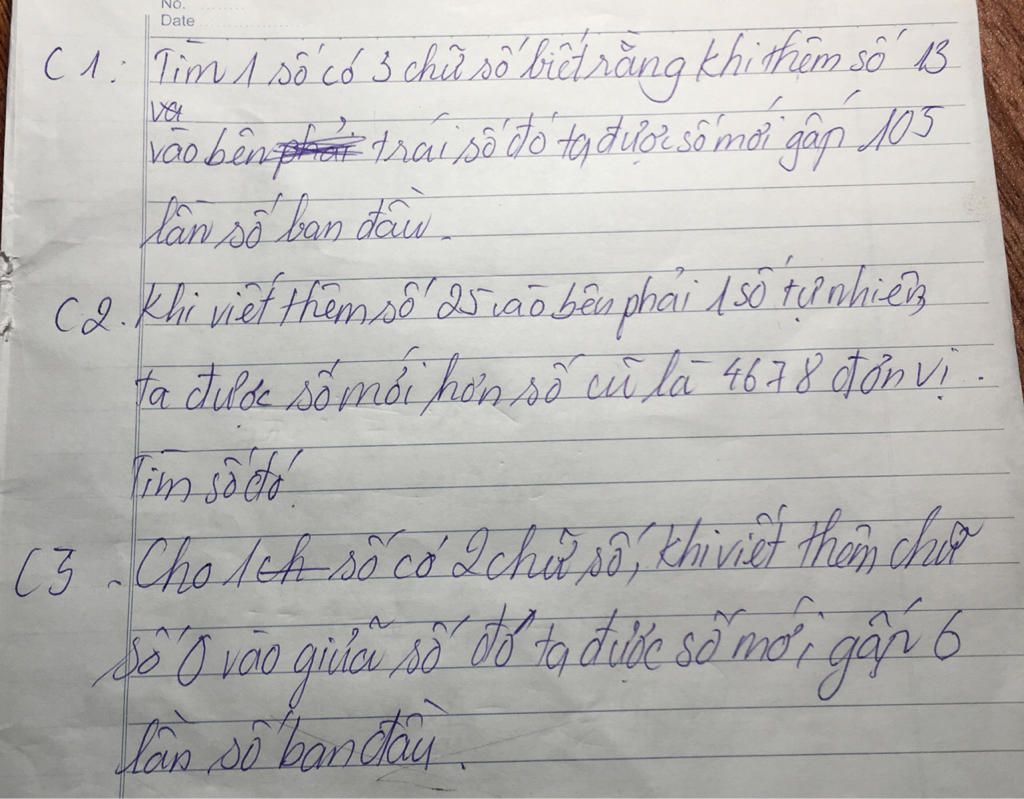 No.
Date
C1: Tìm 1 số có 3 chữ số biết rằng khi thêm số 13
vào bên trái số đó ta được số mới gấp 105
lần số ban đầu.
C2. Khi viết thêm số 25 vào bên phải 1 số tự nhiên
ta được số mới hơn số cũ là 4678 đơn vị.
Tìm số đó
C3. Cho 1 số có 2 chữ số, khi viết thêm chữ
số 0 vào giữa số đó ta được số mới gấp 6
lần số ban đầu.